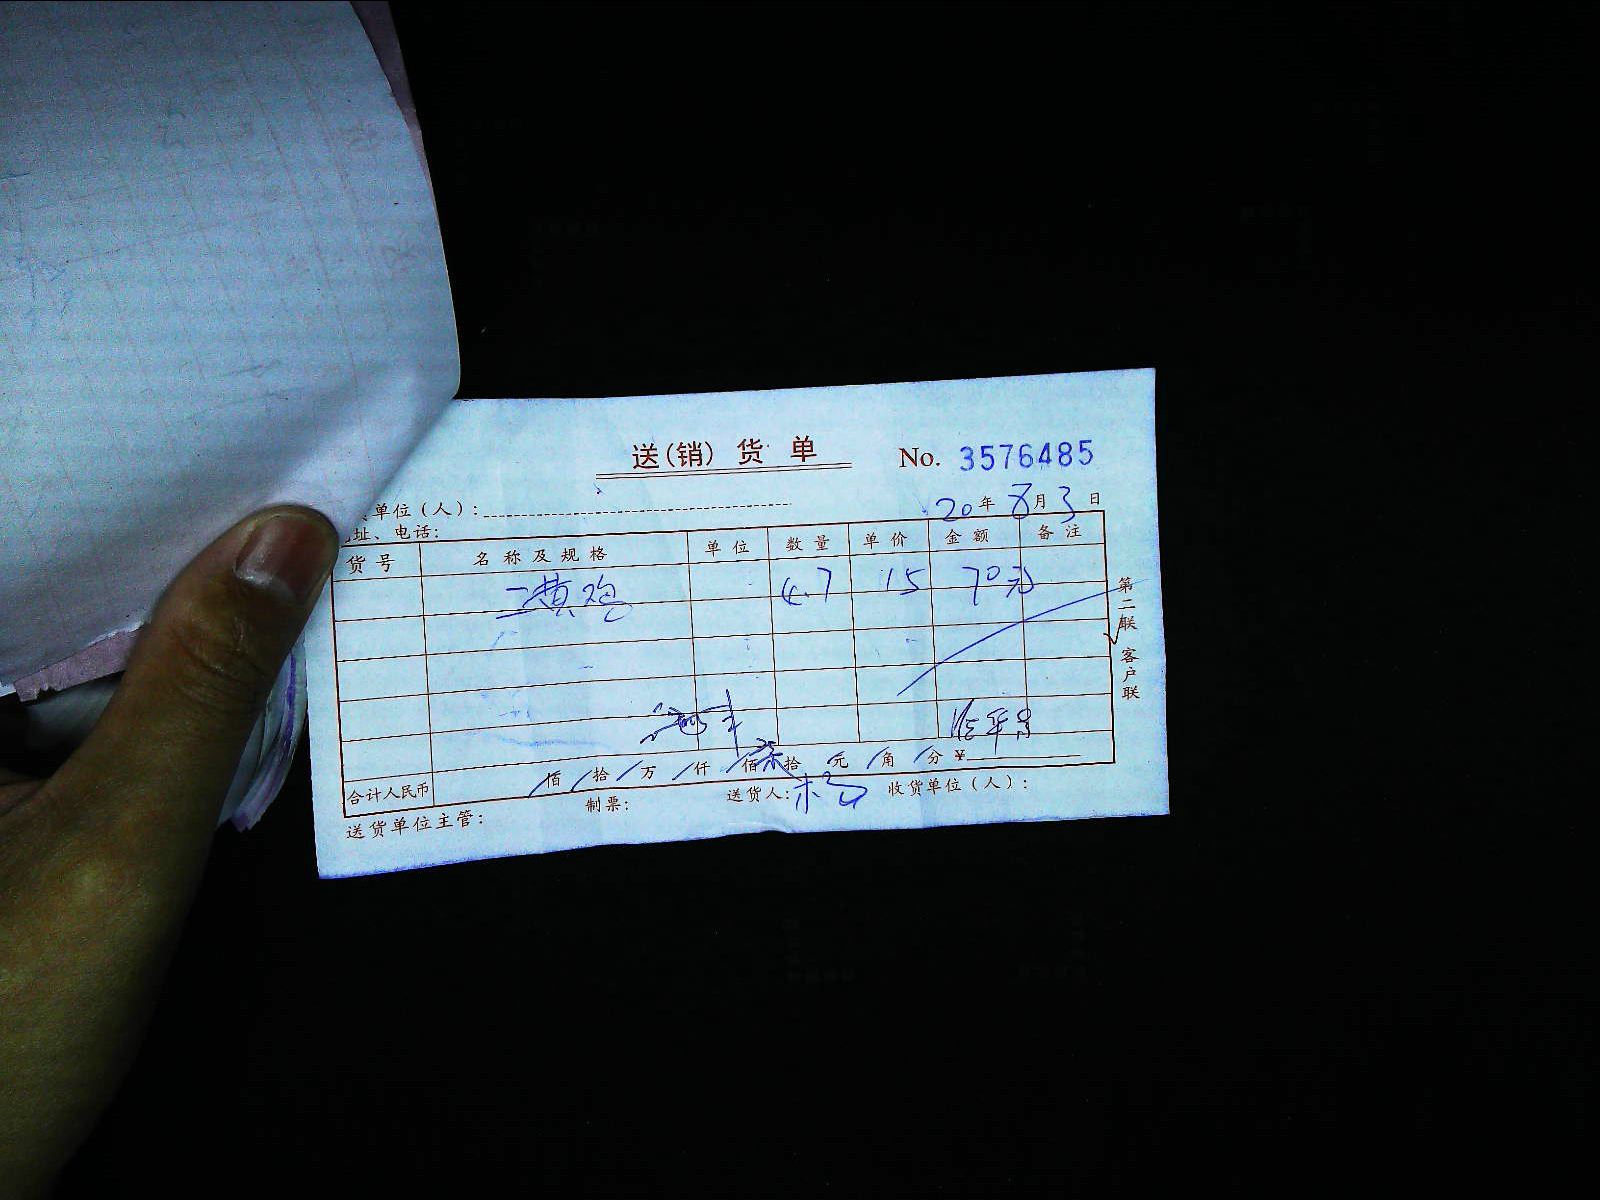 送(销)货单 No. 3576485
单位(人): 20年8月3日
址、电话:
货号 名称及规格 单位 数量 单价 金额 备注
三黄鸡 4.7 15 70元
合计人民币 佰 拾 万 仟 佰 柒拾 元 角 分 ¥
送货单位主管: 制票: 送货人:杨 收货单位(人):
第二联 客户联